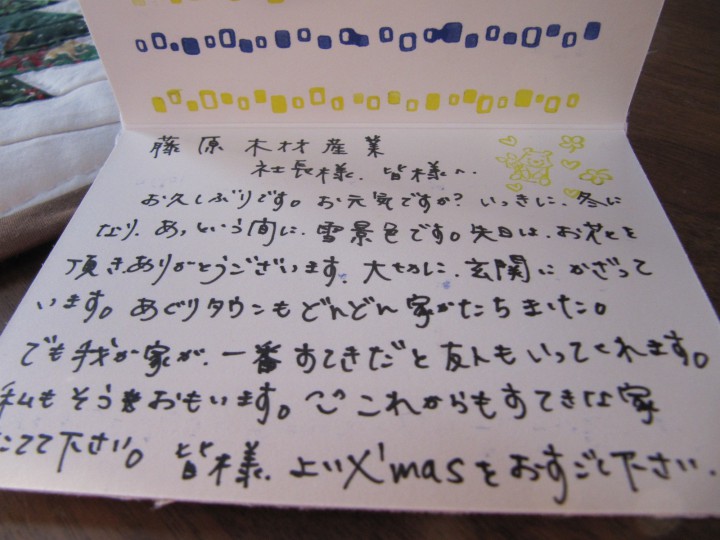 藤原木材産業
社長様、皆様へ
お久しぶりです。お元気ですか？いっきに、冬に
なり、あっという間に、雪景色です。先日は、お花を
頂き、ありがとうございます。大切に、玄関にかざって
います。あぐりタウンもどんどん家がたちました。
でも我が家が、一番すてきだと友人もいってくれます。
私もそうおもいます。これからもすてきな家
たてて下さい。皆様、よいX'masをおすごし下さい。